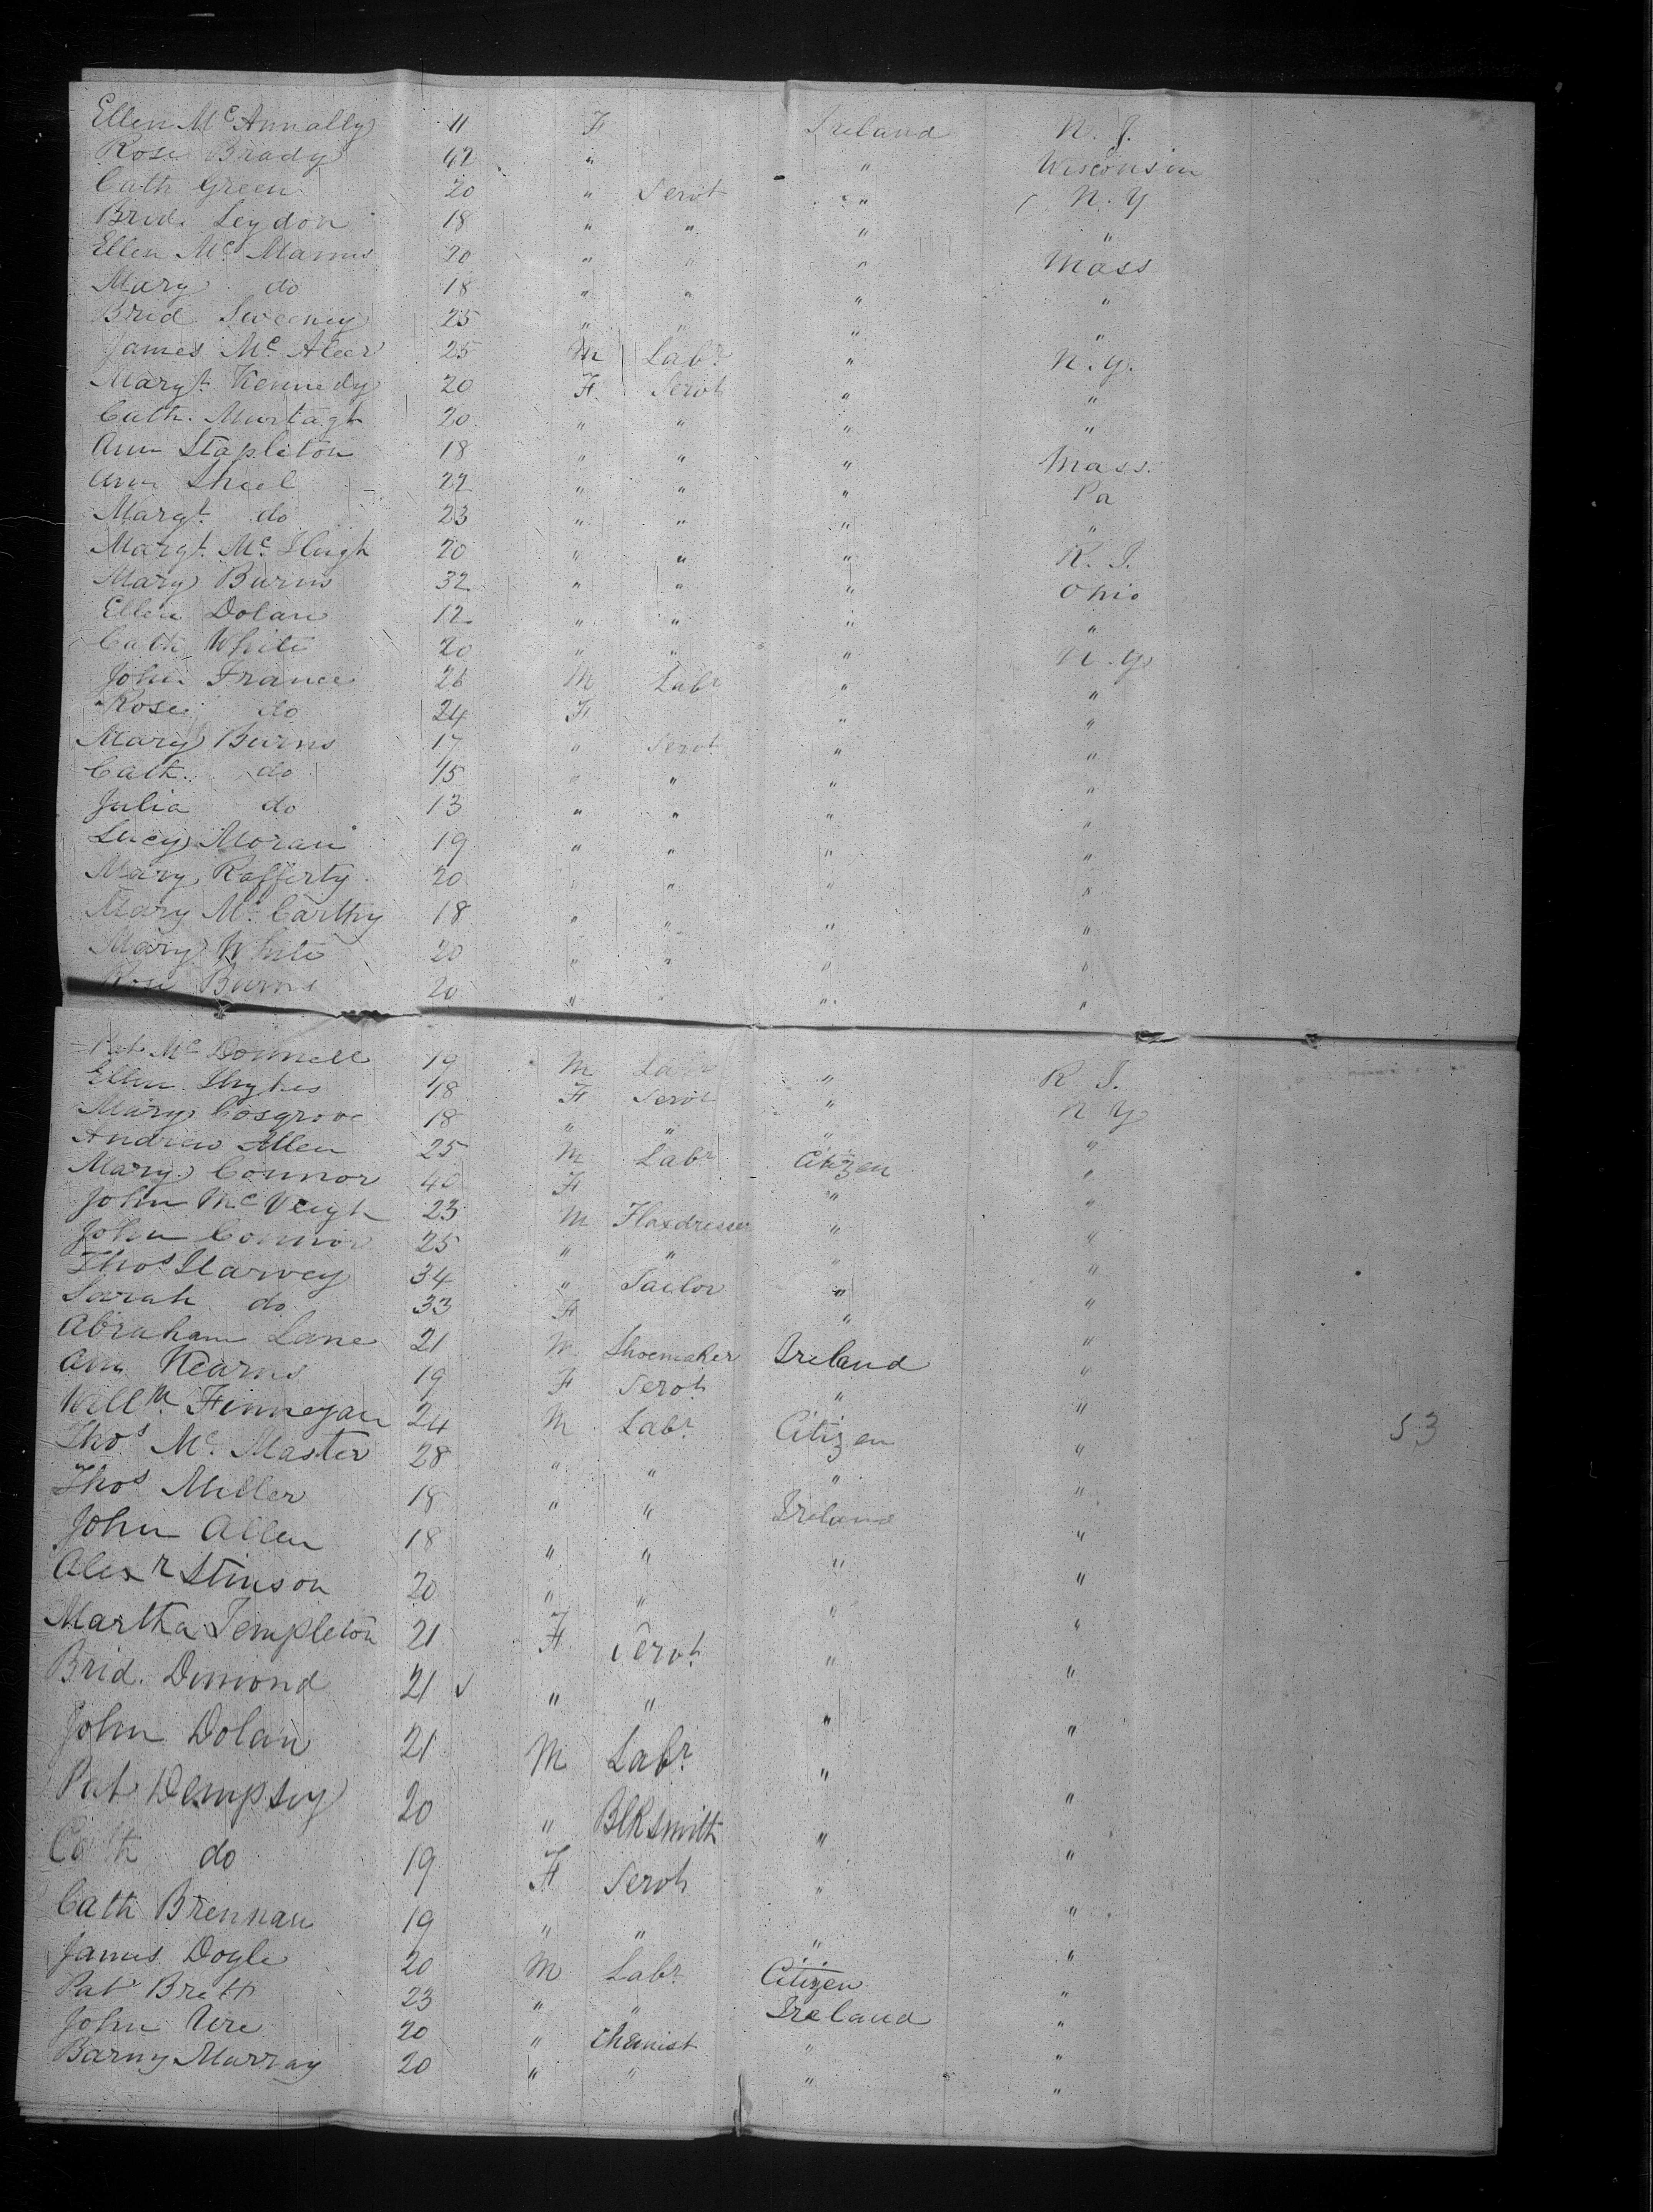 Ellen Mc Annally 11 F Ireland N. J.
Rose Brady 42 " " Wisconsin
Cath Green 20 " Servt " N. Y
Brid. Leydon 18 " " " "
Ellen Mc Manus 20 " " " Mass
Mary do 18 " " " "
Brid Sweeney 25 " " " "
James Mc Aleer 25 M Labr " N. Y.
Margt. Kennedy 20 F. Servt " "
Cath. Murtagh 20 " " " "
Ann Stapleton 18 " " " Mass.
Ann Shiel 22 " " " Pa
Margt. do 23 " " " "
Margt. Mc. Hugh 20 " " " R. I.
Mary Burns 32 " " " Ohio
Ellen Dolan 12 " " " "
Cath White 20 " " " N. Y
John France 26 M Labr " "
Rose do 24 F " "
Mary Burns 17 " Servt " "
Cath. do 15 " " " "
Julia do 13 " " " "
Lucy Moran 19 " " " "
Mary Rafferty 20 " " " "
Mary Mc Carthy 18 " " " "
Mary White 20 " " " "
Rose Burns 20 " " " "
Pat Mc Donnell 19 M Labr " R. I.
Ellen Hughes 18 F Servt " N Y
Mary Cosgrove 18 " " " "
Andrew Allen 25 M Labr Citizen "
Mary Connor 40 F " "
John Mc Veigh 23 M Flaxdresser " "
John Connor 25 " " " "
Thos Harvey 34 " Tailor " "
Sarah do 33 F " "
Abraham Lane 21 M Shoemaker Ireland "
Ann Kearns 19 F Servt " "
Willm. Finnegan 24 M Labr. Citizen " 53
Thos Mc. Master 28 " " " "
Thos Miller 18 " " Ireland "
John Allen 18 " " " "
Alexr Stinson 20 " " " "
Martha Templeton 21 F Servt " "
Brid. Dimond 21 " " " "
John Dolan 21 M Labr. " "
Pat Dempsey 20 " Blksmith " "
Cath do 19 F Servt " "
Cath Brennan 19 " " " "
James Doyle 20 M Labr. Citizen "
Pat Brett 23 " " Ireland "
John Ure 20 " Chemist " "
Barny Murray 20 " " " "